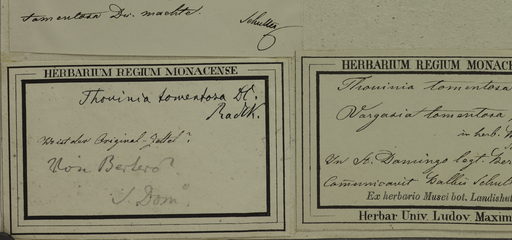 tomentosa Dec. machte.
Schultes
HERBARIUM REGIUM MONACENSE
Thouinia tomentosa DC.
Radlk.
Wo ist der Original-Zettel?
Von Bertero?
S. Dom.
HERBARIUM REGIUM MONACE
Thouinia tomentosa
Vargasia tomentosa
in herb.
In St. Domingo legt. Ber
Communicavit Balbis Schult
Ex herbario Musei bot. Landishut
Herbar Univ. Ludov. Maxim